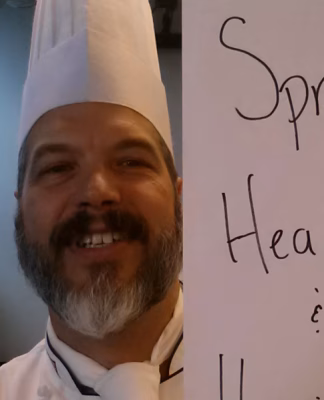 Spr
Hea
&
H